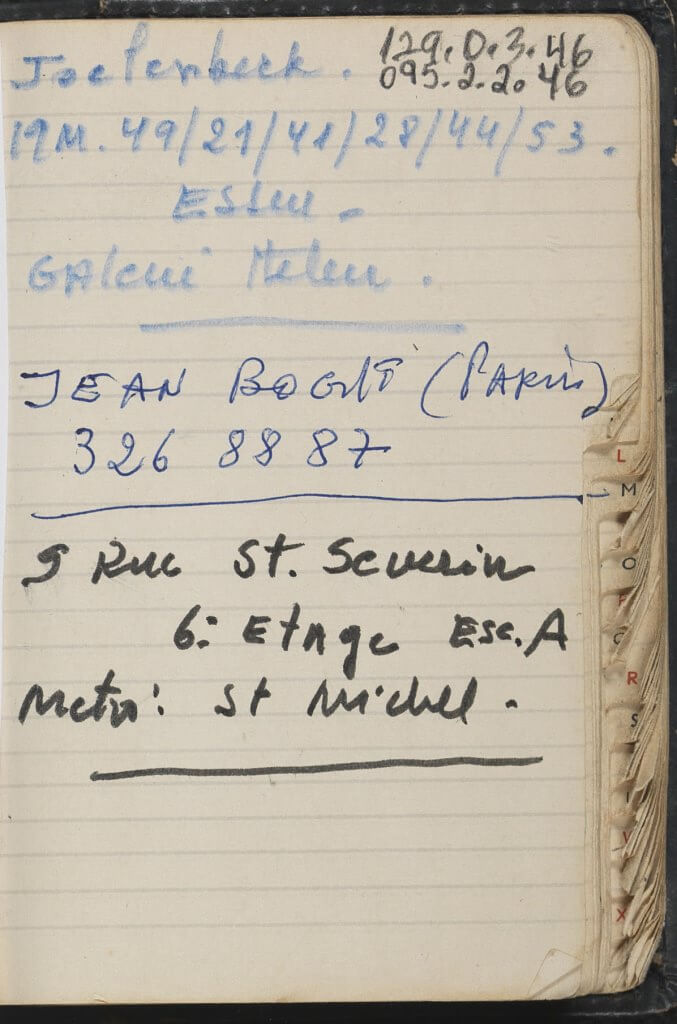 129.0.3.46
095.2.2.46
19M. 49/21/41/28/44/53.
Essen -
JEAN (PARIS)
326 88 87
9 Rue St. Severin
6: Etage Esc. A
Metro: St Michel.
L
M
O
P
Q
R
S
V
X